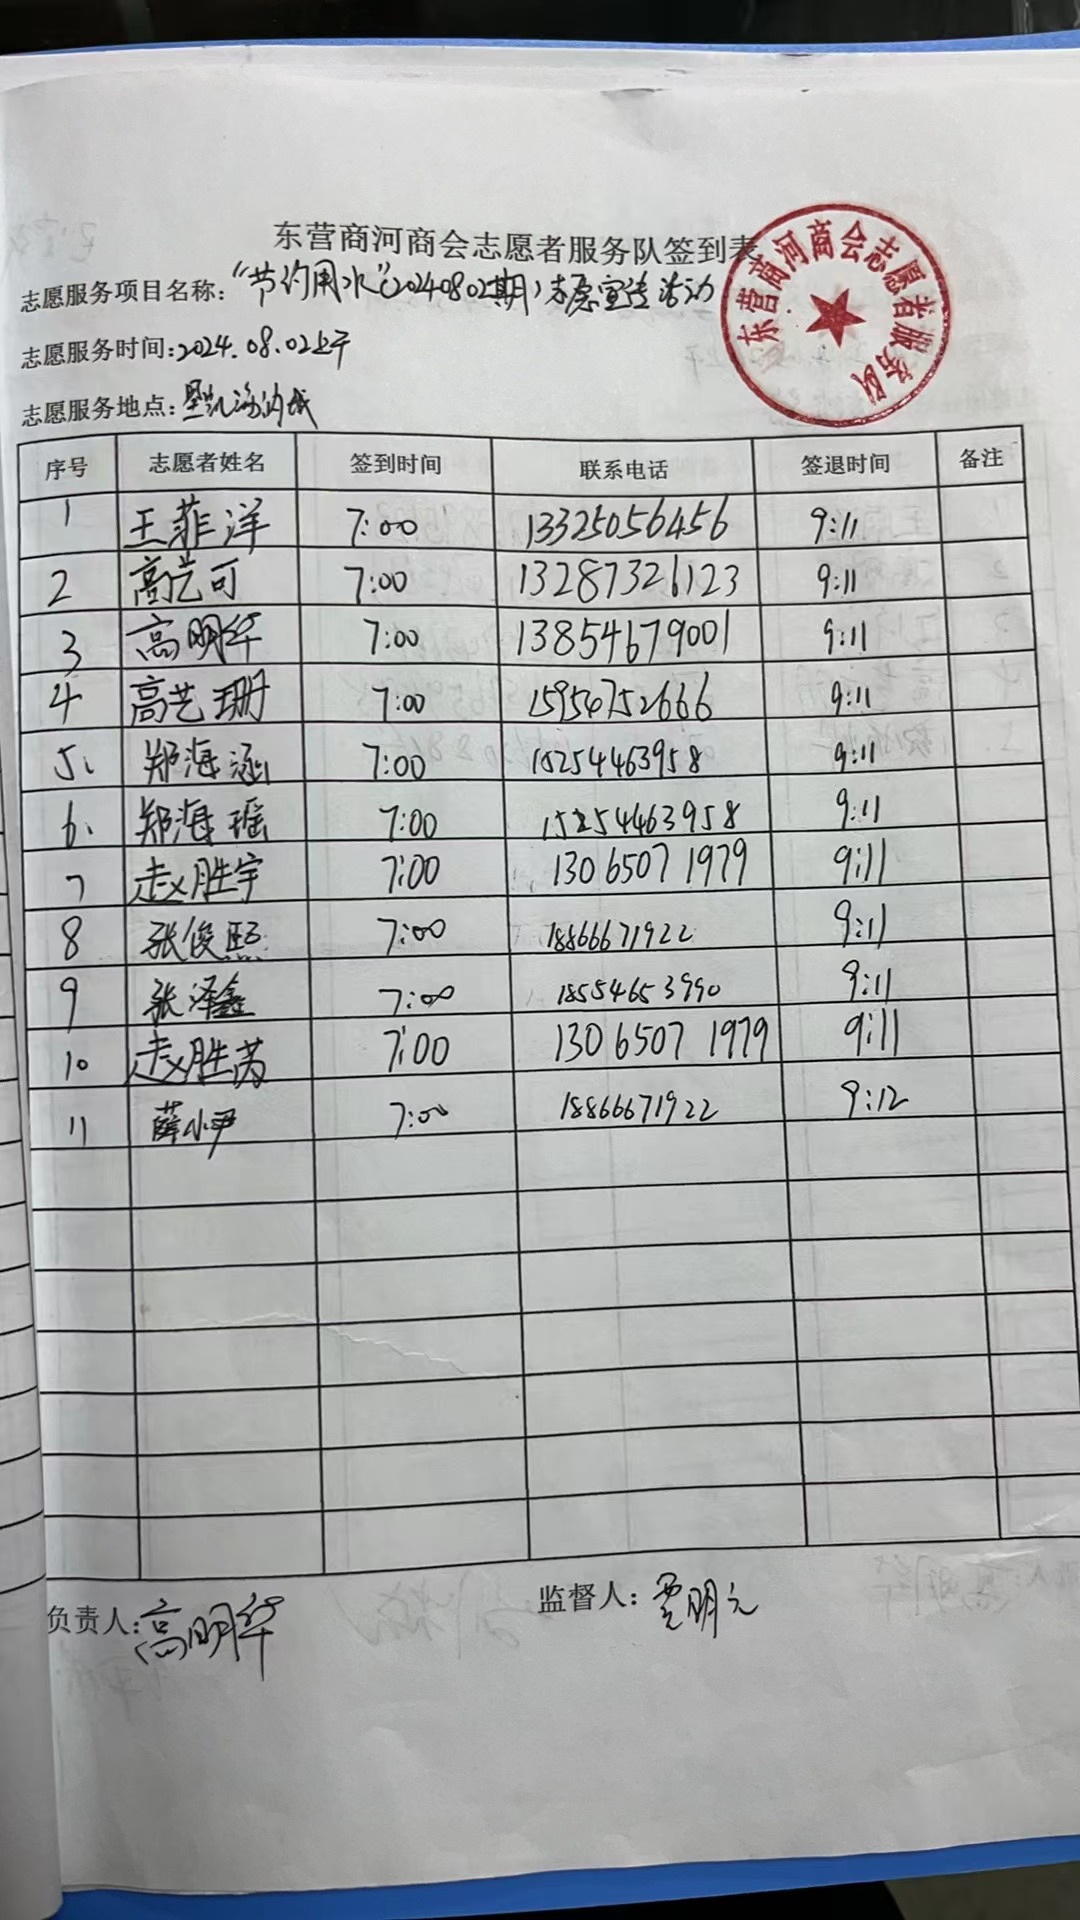 东营商河商会志愿者服务队签到表
东营商河商会志愿者服务队
志愿服务项目名称："节约用水"(20240802期)志愿宣传活动
志愿服务时间:2024.08.02上午
志愿服务地点：
序号 志愿者姓名 签到时间 联系电话 签退时间 备注
1 王菲洋 7:00 13325056456 9:11
2 高艺可 7:00 13287326123 9:11
3 高明华 7:00 13854679001 9:11
4 高艺珊 7:00 15954752666 9:11
5. 郑海涵 7:00 15254463958 9:11
6. 郑海瑶 7:00 15254463958 9:11
7 赵胜宇 7:00 13065071979 9:11
8 张俊熙 7:00 18866671922 9:11
9 张泽鑫 7:00 18554653990 9:11
10 赵胜芮 7:00 13065071979 9:11
11 薛小尹 7:00 18866671922 9:12
负责人:高明华 监督人：贾明元